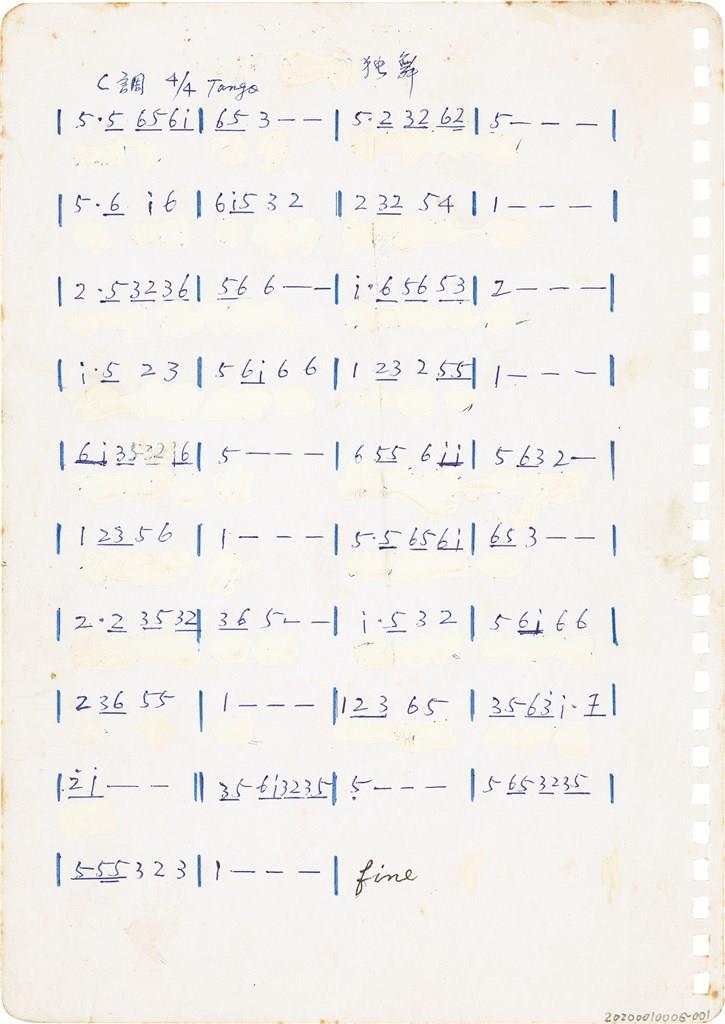 独舞
C調 4/4 Tango
| 5·5 656i | 65 3 — — | 5·2 32 62 | 5 — — — |
| 5·6 i 6 | 6i5 3 2 | 2 32 54 | 1 — — — |
| 2·53236 | 56 6 — — | i·65653 | 2 — — — |
| i·5 2 3 | 5 6i 6 6 | 1 23 2 55 | 1 — — — |
| 6i353216 | 5 — — — | 6 55 6ii | 5 63 2 — |
| 1 2356 | 1 — — — | 5·5 656i | 65 3 — — |
| 2·2 3532 | 36 5 — — | i·5 3 2 | 5 6i 6 6 |
| 2 36 55 | 1 — — — | 123 65 | 3563i·7 |
| 2i — — || 356i3235 | 5 — — — | 5 653235 |
| 555323 | 1 — — — | fine
20200010006-001